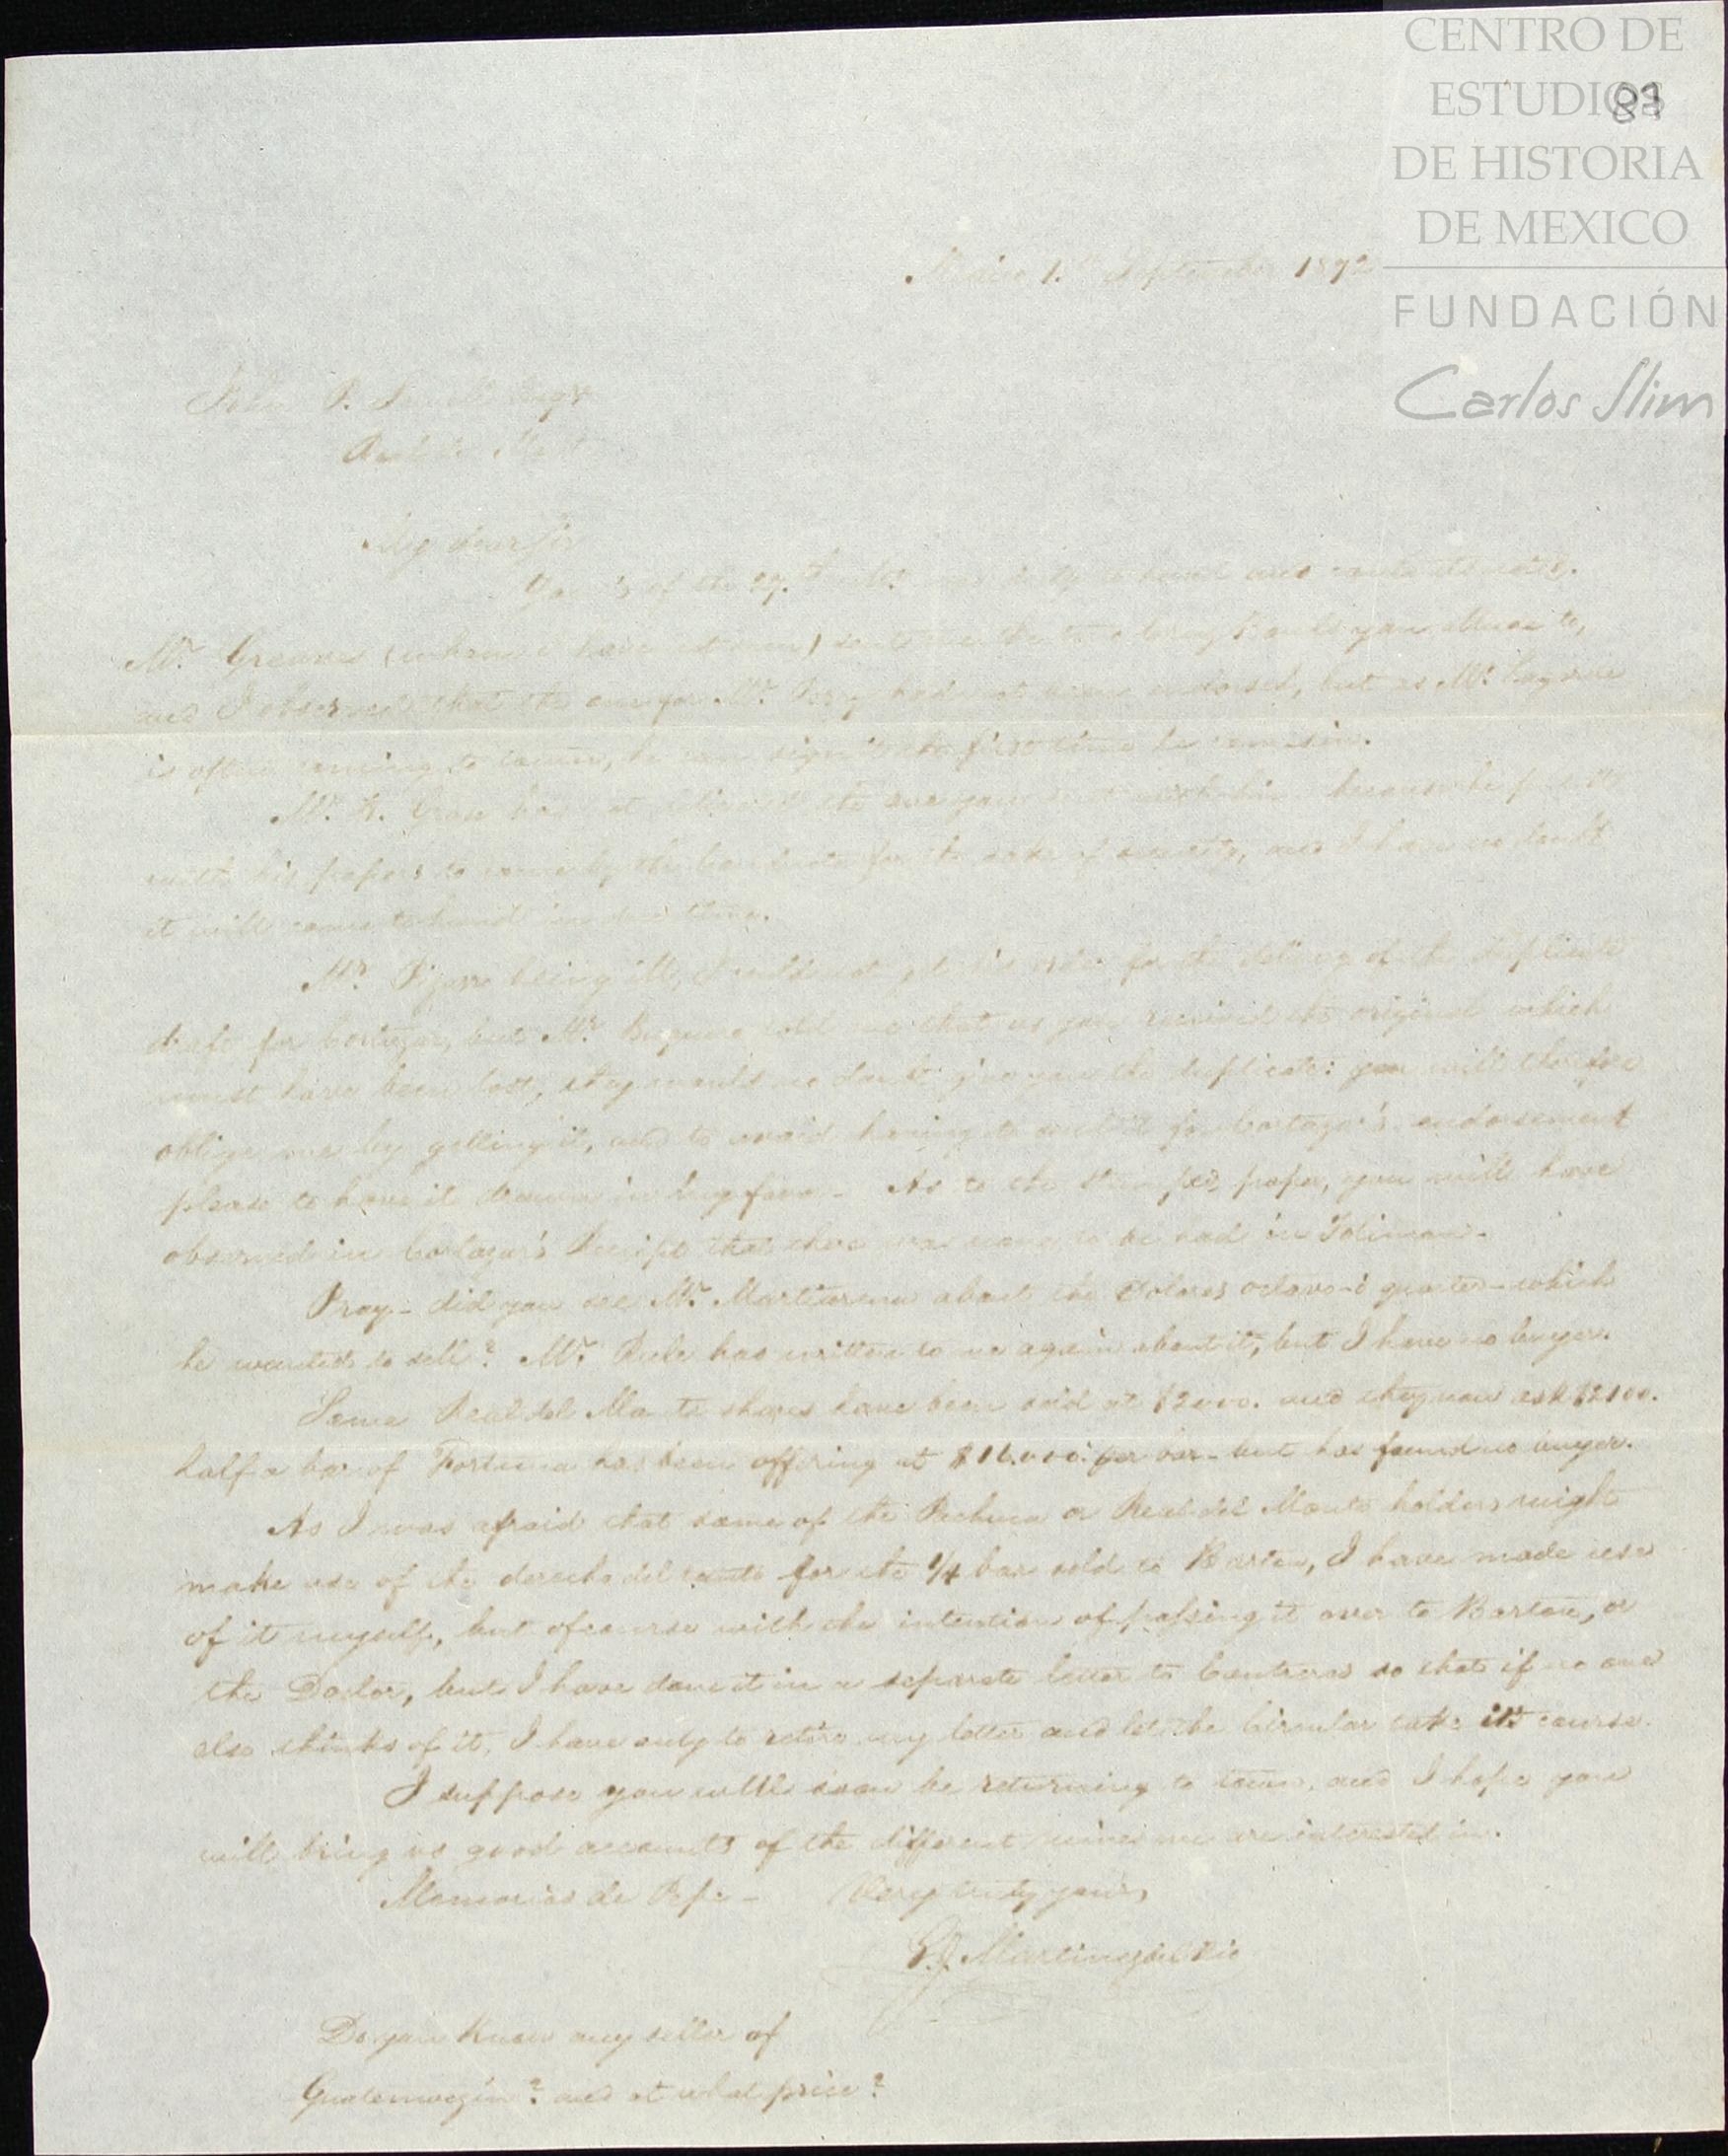 CENTRO DE
ESTUDIOS
DE HISTORIA
DE MEXICO
FUNDACIÓN
Carlos Slim
89
1. September 1872
John P.
Real del Monte
My dear Sir
Yours of the 29.th to hand and contents noted.
Mr. Greaves (whom I have not seen) sent me the two you allude to,
and I observed that the one for Mr. had not been endorsed, but as Mr.
is often coming to town, he can sign it the first time he comes in.
Mr. has not the one you sent with him because he put it
with his papers to come by the Conducta for the sake of security, and I have no doubt
it will come to hand in due time.
Mr. being ill, I could not get his order for the delivery of the duplicate
draft for Cortazar, but Mr. told me that as you received the original which
must have been lost, they would no doubt give you the duplicate: you will therefore
oblige me by getting it, and to avoid having to send it for Cortazar's endorsement
please to have it drawn in my favor - As to the stamped paper, you will have
observed in Cortazar's Receipt that there was none to be had in Toliman.
Pray - did you see Mr. Martiarena about the Dolores octavo - i quarto - which
he wanted to sell? Mr. Rule has written to me again about it, but I have no buyer.
Some Real del Monte shares have been sold at $2000. and they now ask $2100.
half a bar of Fortuna has been offering at $16.000. per bar - but has found no buyer.
As I was afraid that some of the Pachuca or Real del Monte holders might
make use of the derecho del tanto for the 1/4 bar sold to Barton, I have made use
of it myself, but of course with the intention of passing it over to Barton, or
the Doctor, but I have done it in a separate letter to Contreras so that if no one
else thinks of it, I have only to retire my letter and let the Circular take its course.
I suppose you will soon be returning to town, and I hope you
will bring us good accounts of the different mines we are interested in.
Memorias de Pepe - Very truly yours
Martinez del Rio
Do you know any seller of
Guatemozin? and at what price?